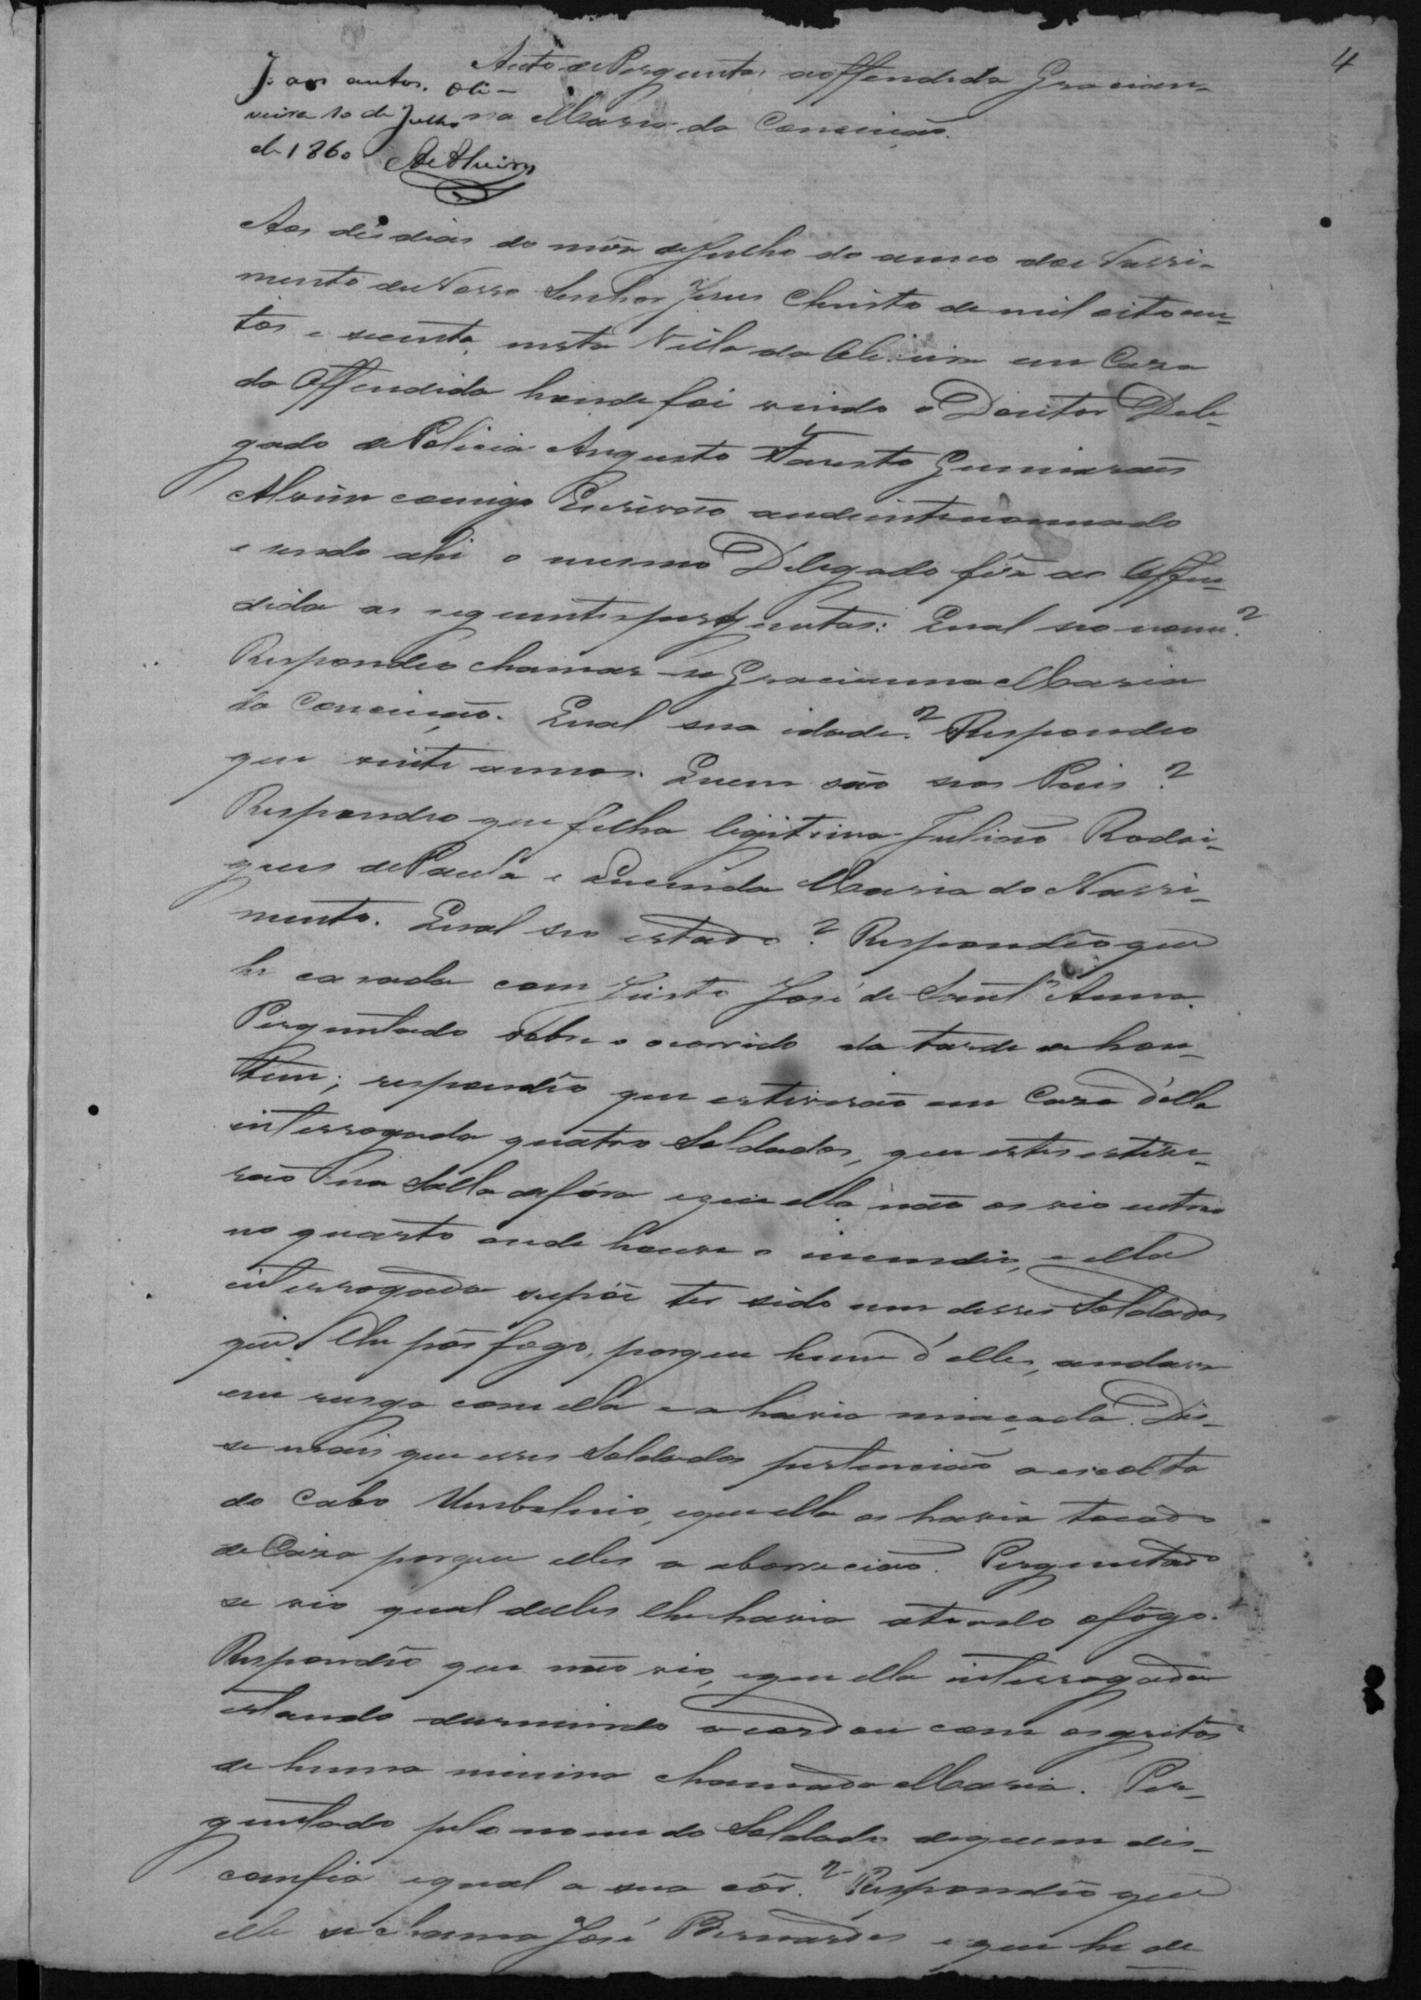 4
Auto de Perguntas a offendida Gracian-
na Maria da Conceição.
J. aos autos. Oli-
veira 10 de Julho
de 1860
Aos dés dias do mês de Julho do anno do Nassi-
mento de Nosso Senhor Jesus Christo de mil oitocen-
tos e secenta, nesta Villa da Oliveira em Caza
da Offendida honde foi vindo o Doutor Dele-
gado de Policia Augusto Fausto Guimaraes
Alvim comigo Escrivão
e sendo ahi o mesmo Delegado fês as Offen-
dida as seguintes perguntas: Qual seo nome?
Respondeo chamar-se Gracianna Maria
da Conceição. Qual sua idade? Respondeo
que vinte annos. Quem são seos Pais?
Respondeo que filha legitima Julião Rodri-
gues de Paula e Maria do Nassi-
mento. Qual seo estado? Respondêo que
he casada com Justo José de Sant'Anna.
Perguntado sobre o ocorrido da tarde de hon-
tem; respondêo que estiverão em Caza d'ella
interrogada quatro Soldados, que estes estive-
rão na Salla de fóra e que ella não os vio entrar
no quarto onde houve o incendio, e ella
interrogada supõe ter sido um desses Soldados
que lhe pôs fogo, porque hum d'elles, andava
em rusga com ella e a havia miaçada. Dis-
se mais que esses Soldados pertencião a escolta
do Cabo Umbelino, e que ella os havia tocado
de Caza porque elles a aborrecião. Perguntado
se vio qual delles lhe havia ateado o fôgo.
Respondêo que não vio, e que ella interrogada
estando durmindo acordou com os gritos
de huma minina chamada Maria. Per-
guntado pelo nome do Soldado de quem dis-
confia e qual a sua côr? Respondêo que
elle se chama José Bernardes e que he de